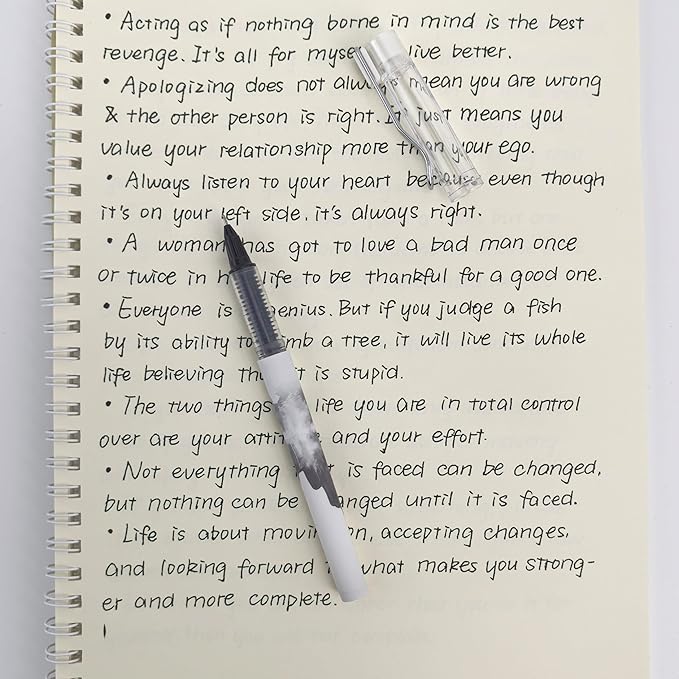 • Acting as if nothing borne in mind is the best
revenge. It's all for myse live better.
• Apologizing does not always mean you are wrong
& the other person is right. It just means you
value your relationship more than your ego.
• Always listen to your heart because even though
it's on your left side, it's always right.
• A woman has got to love a bad man once
or twice in her life to be thankful for a good one.
• Everyone is genius. But if you judge a fish
by its ability to climb a tree, it will live its whole
life believing that it is stupid.
• The two things life you are in total control
over are your attitude and your effort.
• Not everything that is faced can be changed,
but nothing can be changed until it is faced.
• Life is about moving on, accepting changes,
and looking forward to what makes you strong-
er and more complete.